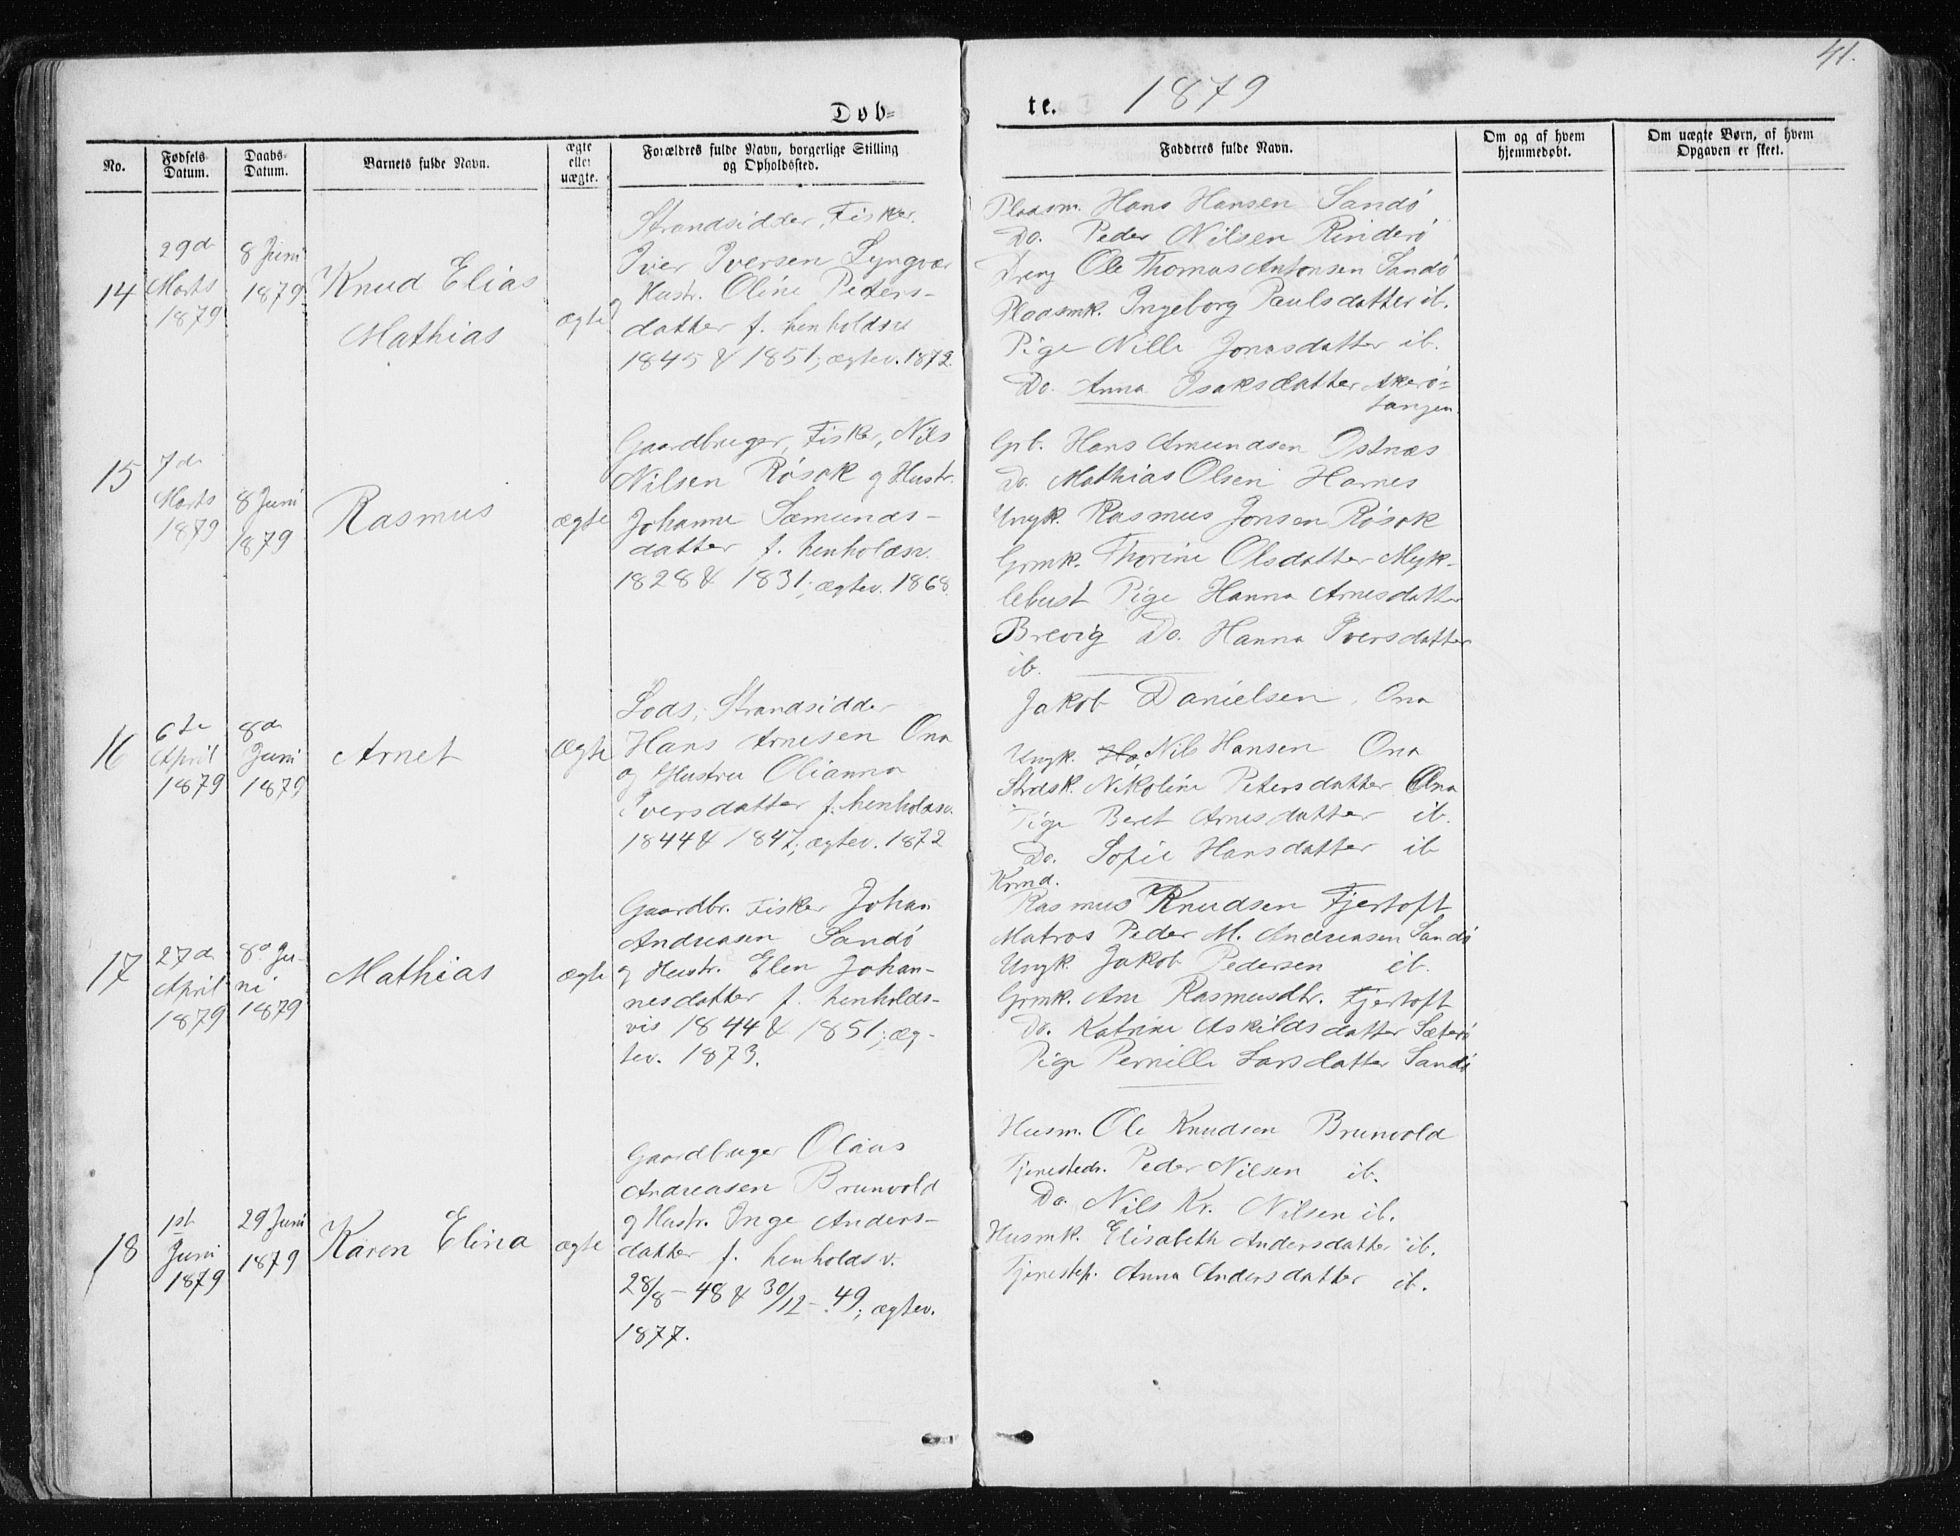 41.
Døb=
te. 1879
No.
Fødsels-
Datum.
Daabs-
Datum.
Barnets fulde Navn.
ægte
eller
uægte.
Forældres fulde Navn, borgerlige Stilling
og Opholdssted.
Fadderes fulde Navn.
Om og af hvem
hjemmedøbt.
Om uægte Børn, af hvem
Opgaven er skeet.
14
29de
Marts
1879
8 Juni
1879
Knud Elias
Mathias
ægte
Strandsidder, Fisker.
Iver Iversen Lyngvær
g Hustr. Oline Peters-
datter f. henholdsv.
1845 & 1851; ægtev. 1872.
Pladsm. Hans Hansen Sandø
Do. Peder Nilsen Rinderø
Dreng Ole Thomas Antonsen Sandø
Pladsmk. Ingeborg Paulsdatter ib.
Pige Nille Jonasdatter ib.
Do. Anna Isaksdatter Akerø=
tangen.
15
7de
Marts
1879
8 Juni
1879
Rasmus
ægte
Gaardbruger, Fisker, Nils
Nilsen Røsok g Hustr.
Johanne Sæmunds-
datter f. henholdsv.
1828 & 1831; ægtev. 1868.
Grb. Hans Amundsen Ostnæs
Do. Mathias Olsen Harnes
Ungk. Rasmus Jonsen Røsok
Grmk. Thorine Olsdatter Myk-
lebust Pige Hanna Arnesdatter
Brevig Do. Hanna Iversdatter
ib.
16
6te
April
1879
8de
Juni
1879
Arnet
Ægte
Lods, Strandsidder
Hans Arnesen Ona
og Hustru Olianna
Iversdatter f. henholdsv.
1844 & 1847; ægtev. 1872
Jakob Danielsen, Ona
Ungk. Ha Nils Hansen Ona
Strdsk. Nikoline Petersdatter Ona
Pige Beret Arnesdatter ib.
Do. Sofie Hansdatter ib
17
27de
April
1879
8de Ju-
ni
1879
Mathias
ægte
Gaardbr. Fisker Johan
Andreasen Sandø
g Hustr. Elen Johan-
nesdatter f. henholds-
vis 1844 & 1851; æg-
tev. 1873.
Krmd.
Rasmus Knudsen Fjertoft
Matros Peder M. Andreasen Sandø
Ungk. Jakob Pedersen ib.
Grmk. Ane Rasmusdtr. Fjertoft
Do. Katrine Askildsdatter Sæterø
Pige Pernille Larsdatter Sandø
18
1st
Juni
1879
29 Juni
1879
Karen Elina
ægte
Gaardbruger Olaus
Andreasen Brunvold
g Hustr. Inge Anders-
datter f. henholdsv.
28/8 - 48 & 30/12 - 49; ægtev.
1877.
Husm. Ole Knudsen Brunvold
Tjenestedr. Peder Nilsen ib.
Do. Nils Kr. Nilsen ib.
Husmk. Elisabeth Andersdatter ib.
Tjenestep. Anna Andersdatter ib.